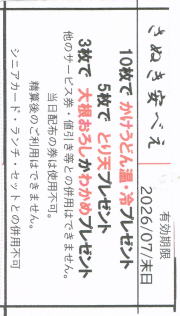 さぬき安べえ
有効期限
2026/07/末日
10枚で かけうどん温・冷プレゼント
5枚で とり天プレゼント
3枚で 大根おろしかわかめプレゼント
他のサービス券・値引き等との併用はできません。
当日配布の券は使用不可。
精算後のご利用はできません。
シニアカード・ランチ・セットとの併用不可